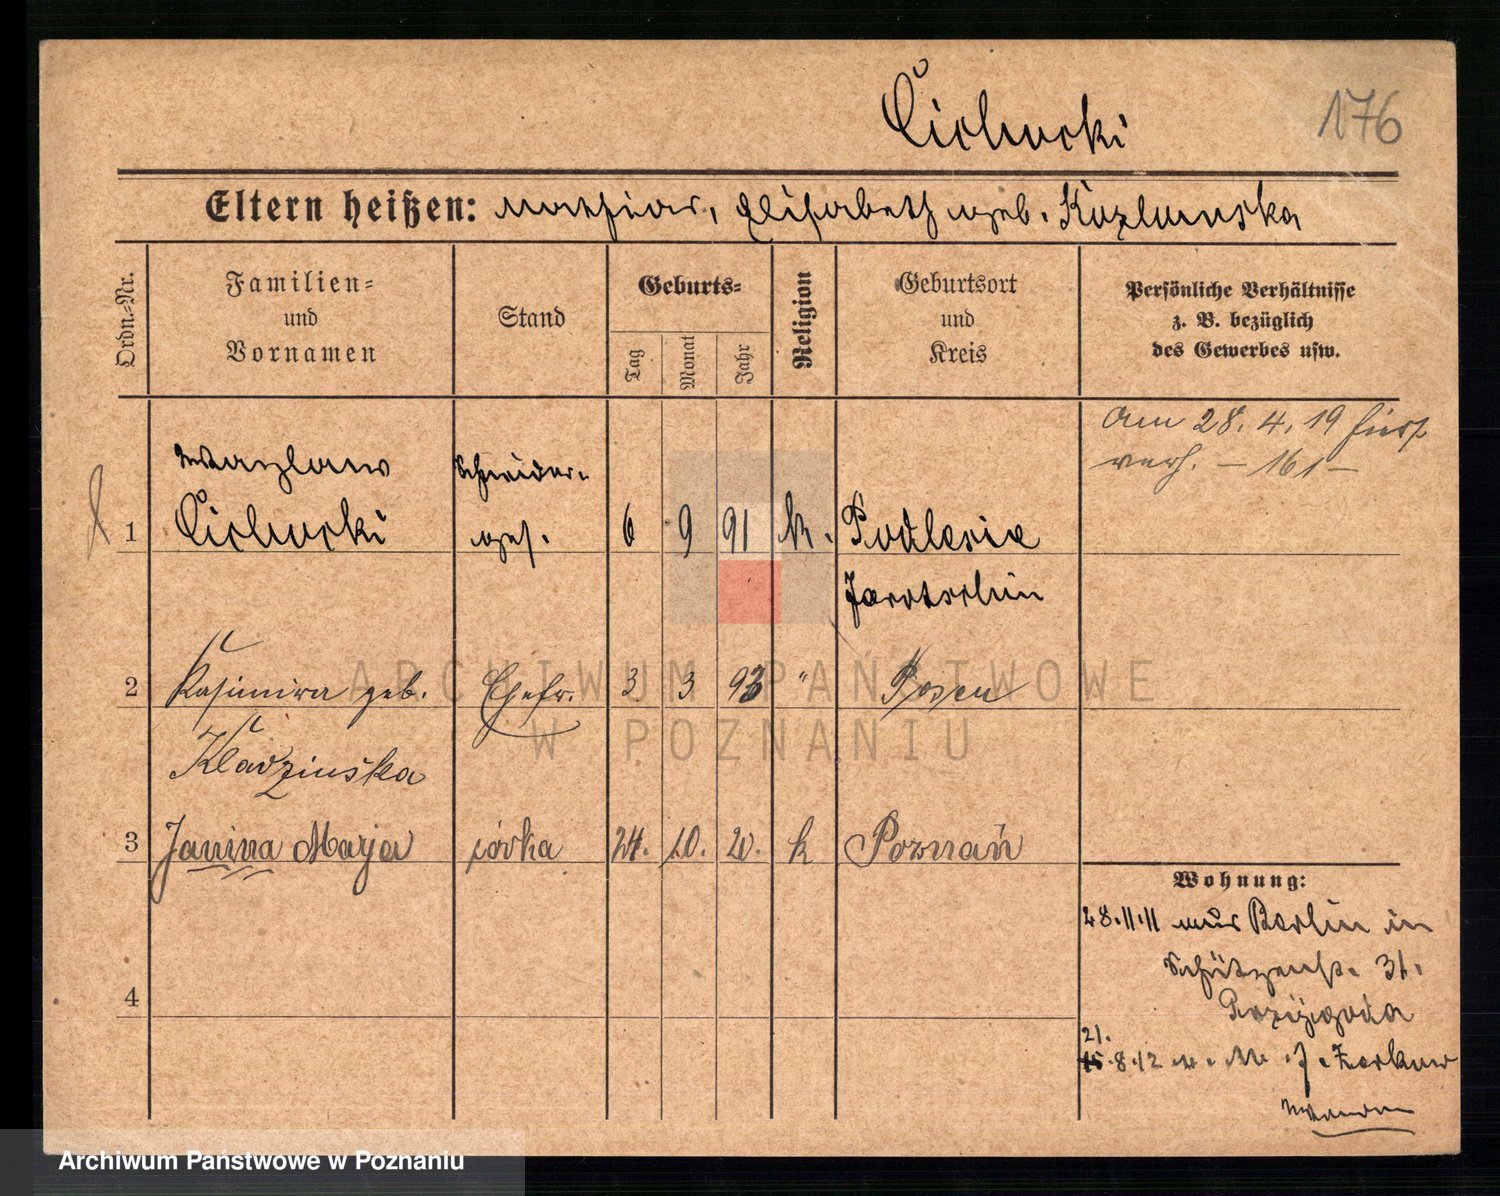 Cichocki
176
Eltern heißen: Mathias, Elisabeth geb. Kozlowska
Ordn.-Nr.
Familien-
und
Vornamen
Stand
Geburts-
Tag
Monat
Jahr
Religion
Geburtsort
und
Kreis
Persönliche Verhältnisse
z. B. bezüglich
des Gewerbes usw.
am 28. 4. 19
verh. — 161 —
Schneider-
1 Cichocki ges. 6 9 91 k. Podlesie
Jarotschin
2 Kasimira geb. Ehefr. 3 3 93 " Posen
3 Janina Marja córka 24. 10. 20. k Poznań
Wohnung:
28.11.11 aus Berlin in
Schützenstr. 31.
4
21.
15.8.12
ARCHIWUM PAŃSTWOWE
W POZNANIU
Archiwum Państwowe w Poznaniu